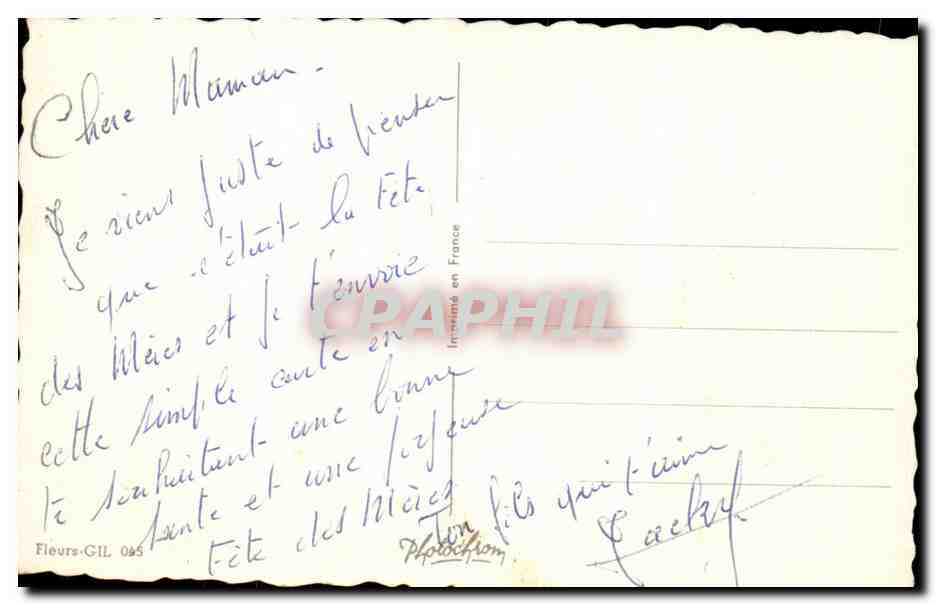 Chere Maman -
Je viens juste de penser
que c'était la Fête
des Mères et je t'envoie
cette simple carte en
te souhaitant une bonne
sante et une joyeuse
Fête des Mères
Ton fils qui t'aime
Imprimé en France
CPAPHIL
Fleurs-GIL 045
Photochrom